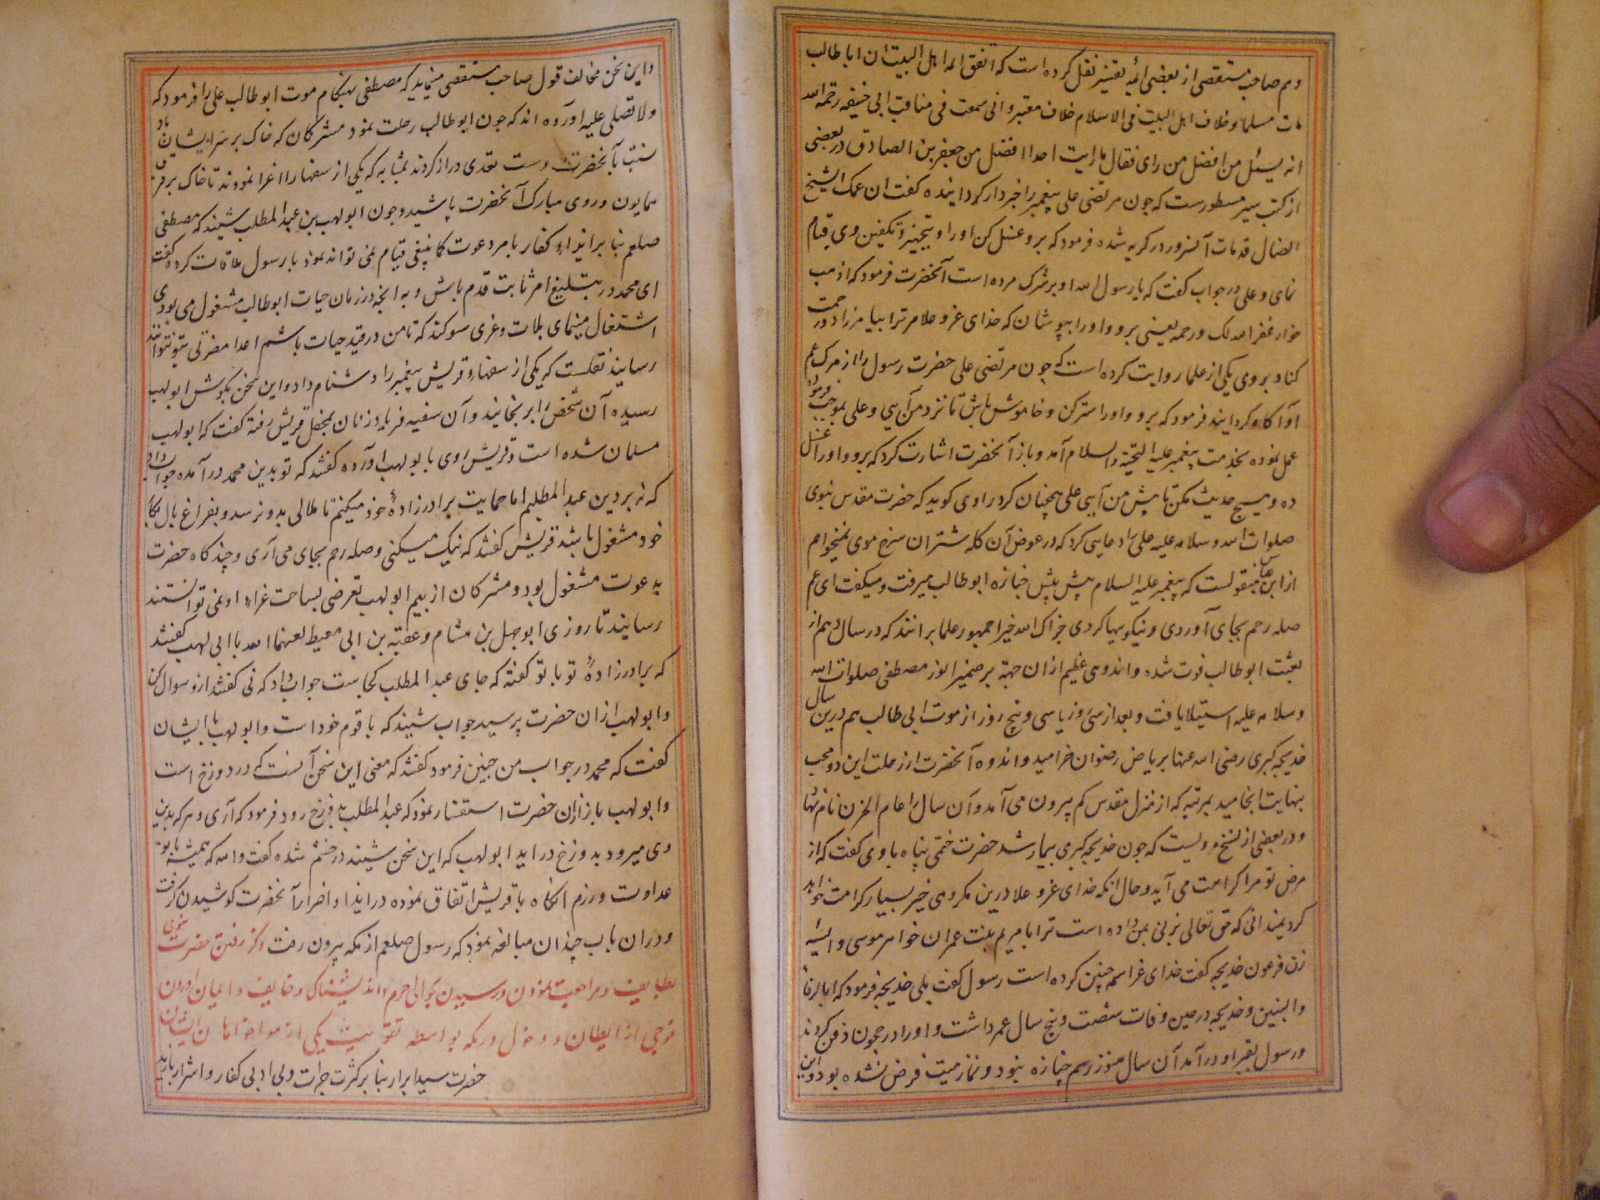 و هم صاحب مستقصی از بعضی ائمه تفسیر نقل کرده است که اتفق ائمه اهل البیت ان ابا طالب
مات مسلما و خلاف اهل البیت فی الاسلام خلاف معتبر و انی سمعت فی مناقب ابی حنیفه رحمه الله
انه یسئل من افضل من رای فقال ما رایت احدا افضل من جعفر بن الصادق و در بعضی
از کتب سیر مسطورست که چون مرتضی علی پیغمبر را خبردار گردانیده گفت ان عمک الشیخ
الضال قد مات آن سرور در گریه شده فرمود که برو غسل کن او را و بتجهیز و تکفین وی قیام
نمای و علی در جواب گفت که یا رسول الله او بر شرک مرده است آنحضرت فرمود که اذهب
خوار غفر الله لک و رحمه یعنی برو و او را بپوشان که خدای عز و علا مر ترا بیامرزاد و رحمت
کناد بر وی یکی از علما روایت کرده است که چون مرتضی علی حضرت رسول را از مرگ عم
او آگاه گردانید فرمود که برو و او را ستر کن و خاموش باش تا نزد من آیی و علی بموجب فرموده
عمل نموده بخدمت پیغمبر علیه التحیة والسلام آمد و باز آنحضرت اشارت کرد که برو و او را غسل
ده و هیچ حدیث مکن تا پیش من آیی علی همچنان کرد راوی گوید که حضرت مقدس نبوی
صلوات الله و سلامه علیه علی را دعایی کرد که در عوض آن گله شتران سرخ موی نمیخواهم
از ابن عباس منقولست که پیغمبر علیه السلام پیش پیش جنازه ابو طالب میرفت و میگفت ای عم
صله رحم بجای آوردی و نیکوییها کردی جزاک الله خیرا جمهور علما برانند که در سال دهم از
بعثت ابو طالب فوت شده و اندوهی عظیم ازان جهة بر ضمیر انور مصطفی صلوات الله
و سلامه علیه استیلا یافت و بعد از سی روز یا سی و پنج روز از موت ابی طالب هم درین سال
خدیجه کبری رضی الله عنها بریاض رضوان خرامید و اندوه آنحضرت از رحلت این دو محب
بنهایت انجامید بمرتبه که از منزل مقدس کم بیرون می آمد و آن سال را عام الحزن نام نهاد
و در بعضی از نسخ مرویست که چون خدیجه کبری بیمار شد حضرت ختمی پناه با وی گفت که از
مرض تو مرا کراهت می آید و حال آنکه خدای عز و علا درین مکروهی خیر بسیار کرامت خواهد
کرد نمیدانی که حق تعالی بزنی بمن داده است ترا با مریم بنت عمران خواهر موسی و آسیه
زن فرعون خدیجه گفت خدای عز اسمه چنین کرده است رسول گفت بلی خدیجه فرمود که ابالرفاء
والبنین و خدیجه در حین وفات شصت و پنج سال عمر داشت و او را در حجون دفن کردند
و رسول بقبر او درآمد آن سال هنوز رسم جنازه نبود و نماز میت فرض نشده بود و این
و این سخن مخالف قول صاحب مستقصی مینماید که مصطفی بهنگام موت ابو طالب علی را فرمود که
ولا تصلی علیه آورده اند که چون ابو طالب رحلت نمود مشرکان که خاک بر سر ایشان باد
نسبت بآنحضرت دست تعدی دراز کردند بمثابه که یکی از سفها را اغرا نمودند تا خاک بر فرق
همایون و روی مبارک آنحضرت پاشید و چون ابو لهب بن عبد المطلب شنید که مصطفی
صلعم بنا بر ایذاء کفار بامر دعوت کما ینبغی قیام نمی تواند نمود با رسول ملاقات کرده گفت
ای محمد در تبلیغ امر ثابت قدم باش و به آنچه در زمان حیات ابو طالب مشغول می بودی
اشتغال مینمای بلات و عزی سوگند که تا من در قید حیات باشم احدا مضرتی بتو نتواند
رسانید نقلست که یکی از سفهاء قریش پیغمبر را دشنام داد و این سخن بگوش ابو لهب
رسیده آن شخص را برنجانید و آن سفیه فریاد زنان بمحفل قریش رفته گفت که ابو لهب
مسلمان شده است و قریش روی بابو لهب آورده گفتند که تو بدین محمد درآمده جواب داد
که نه بر دین عبد المطلبم اما حمایت برادرزاده خود میکنم تا ملالی بدو نرسد و بفراغ بال بکار
خود مشغول باشد قریش گفتند که نیک میکنی و صله رحم بجای می آری و چندگاه حضرت
بدعوت مشغول بود و مشرکان از بیم ابو لهب تعرضی بساحت غراء او نمی توانستند
رسانید تا روزی ابو جهل بن هشام و عقبه بن ابی معیط لعنهما الله با ابی لهب گفتند
که برادرزاده تو با تو گفته که جای عبد المطلب کجاست جواب داد که نی گفتند ازو سوال کن
و ابو لهب ازان حضرت پرسید جواب شنید که با قوم خود است و ابو لهب با ایشان
گفت که محمد در جواب من چنین فرمود گفتند که معنی این سخن آنست که در دوزخ است
و ابو لهب باز ازان حضرت استفسار نمود که عبد المطلب بدوزخ رود فرمود که آری و هر که بدین
وی میرود بدوزخ درآید ابو لهب که این سخن شنید در خشم شده گفت والله که همیشه با تو
عداوت ورزم آنگاه با قریش اتفاق نموده در ایذا و اضرار آنحضرت کوشیدن گرفت
و دران باب چندان مبالغه نمود که رسول صلعم از مکه بیرون رفت ذکر رفتن حضرت نبوی
بطایف و مراجعت نمودن و رسیدن بحوالی حرم و اندیشناک و خایف و اعیان
ازان و دخول در مکه بواسطه تقویت یکی از
حضرت سید ابرار بنا بر کثرت جرات و بی ادبی کفار و اشرار